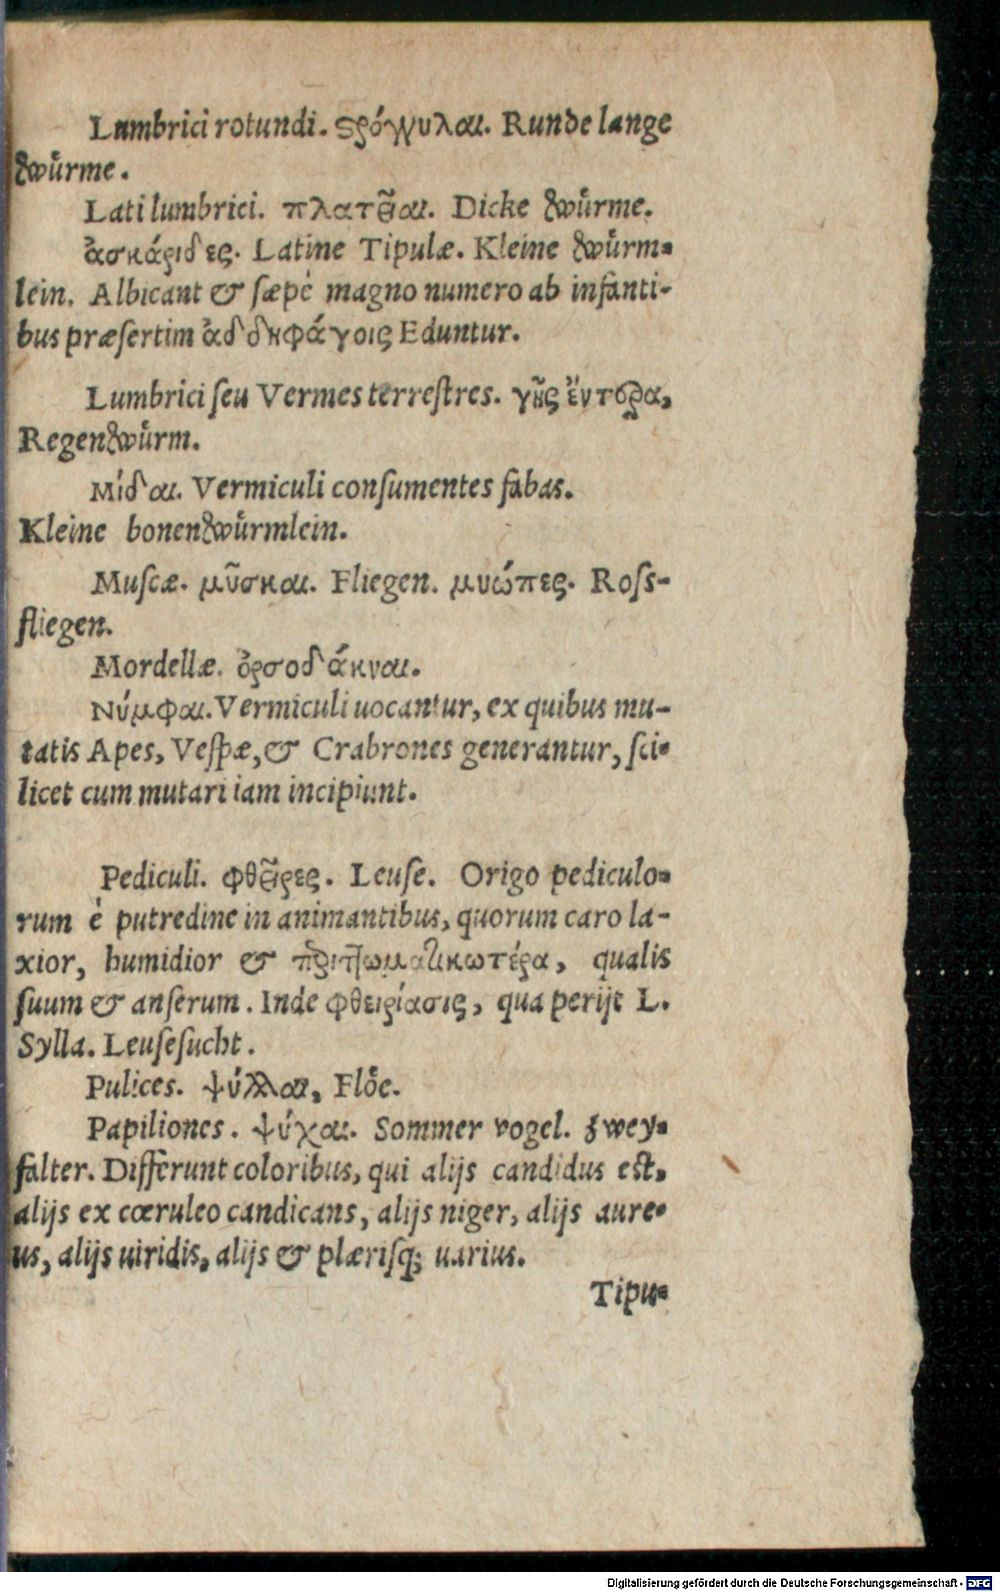 Lumbrici rotundi. ςρόγγυλαι. Runde lange
würme.
Lati lumbrici. πλατεῖαι. Dicke würme.
ἀσκάριδες. Latine Tipulæ. Kleine würm-
lein. Albicant & sæpè magno numero ab infanti-
bus præsertim ἀδδηφάγοις Eduntur.
Lumbrici seu Vermes terrestres. γῆς ἔντερα,
Regenwürm.
Μίδαι. Vermiculi consumentes fabas.
Kleine bonenwürmlein.
Muscæ. μῦσκαι. Fliegen. μυώπες. Ross-
fliegen.
Mordellæ. ὀρσοδάκναι.
Νύμφαι. Vermiculi uocantur, ex quibus mu-
tatis Apes, Vespæ, & Crabrones generantur, sci-
licet cum mutari iam incipiunt.
Pediculi. φθεῖρες. Leuse. Origo pediculo-
rum è putredine in animantibus, quorum caro la-
xior, humidior & περιττωματικωτέρα, qualis
suum & anserum. Inde φθειρίασις, qua perijt L.
Sylla. Leusesucht.
Pulices. ψύλλαι, Flöe.
Papiliones. ψύχαι. Sommer vogel. zwey-
falter. Differunt coloribus, qui alijs candidus est,
alijs ex cœruleo candicans, alijs niger, alijs aure-
us, alijs uiridis, alijs & plærisq; uarius.
Tipu-
Digitalisierung gefördert durch die Deutsche Forschungsgemeinschaft - DFG